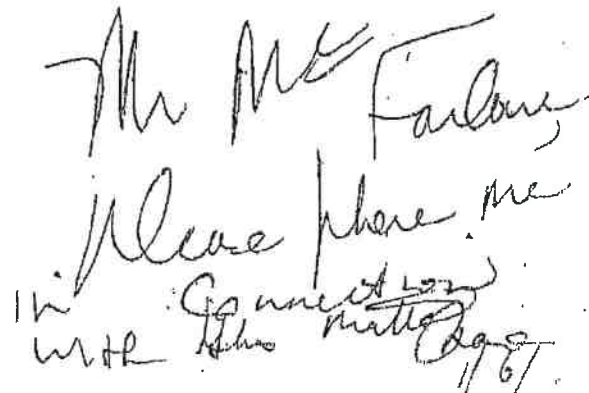 Mr Mc Farlane,
please phone me
in connection
with this matter